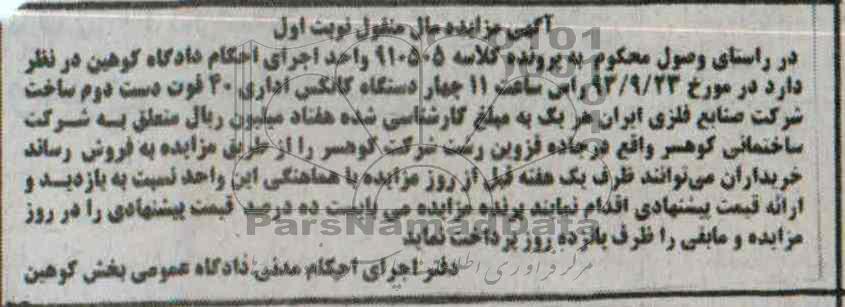 آگهی مزایده مال منقول نوبت اول
در راستای وصول محکوم به پرونده کلاسه ۹۱۰۵۰۵ واحد اجرای احکام دادگاه کوهین در نظر
دارد در مورخ ۹۳/۹/۲۳ راس ساعت ۱۱ چهار دستگاه کانکس اداری ۴۰ فوت دست دوم ساخت
شرکت صنایع فلزی ایران هر یک به مبلغ کارشناسی شده هفتاد میلیون ریال متعلق به شرکت
ساختمانی کوهسر واقع در جاده قزوین رشت شرکت کوهسر را از طریق مزایده به فروش رساند
خریداران می‌توانند ظرف یک هفته قبل از روز مزایده با هماهنگی این واحد نسبت به بازدید و
ارائه قیمت پیشنهادی اقدام نمایند برنده مزایده می بایست ده درصد قیمت پیشنهادی را در روز
مزایده و مابقی را ظرف پانزده روز پرداخت نماید
دفتر اجرای احکام مدنی دادگاه عمومی بخش کوهین
ParsNamadData